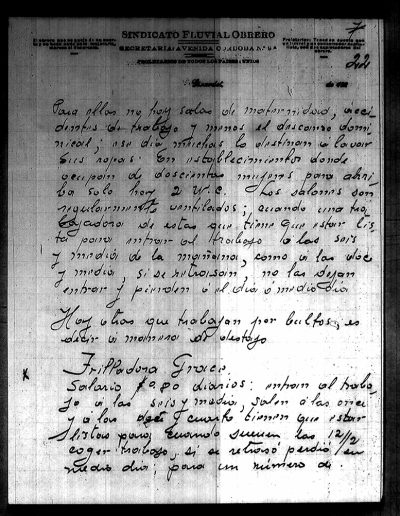 7
22
SINDICATO FLUVIAL OBRERO
SECRETARIA: AVENIDA CORDOBA N.º
PROLETARIOS DE TODOS LOS PAISES: UNIOS
de 192
Para ellas no hay salas de maternidad, acci
dentes de trabajo y menos el descanso domi
nical; ese dia muchas lo destinan a lavar
sus ropas. En establecimientos donde
ocupan de doscientas mujeres para arri
ba solo hay 2 W.C. Los salones son
regularmente ventilados; cuando una tra
bajadora de estas que tiene que estar lis
ta para entrar al trabajo a las seis
y media de la mañana, como a las doce
y media, si se retrasan, no las dejan
entrar y pierden o el dia ó medio dia
Hay otras que trabajan por bultos, es
decir a manera de destajo
x
Trilladora Grace.
Salario $0.80 diarios: entran al traba
jo a las seis y media, salen a las once
y a las doce y cuarto tienen que estar
listas para, cuando suenen las 12½
coger trabajo, si se retrasó perdió
medio dia; para un número de